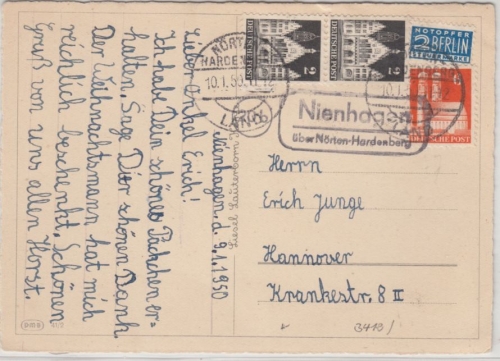 Nienhagen, d. 9.1.1950
Lieber Onkel Erich!
Ich habe Dein schönes Päckchen er=
halten. Sage Dir schönen Dank
Der Weihnachtsmann hat mich
reichlich beschenkt. Schönen
Gruß von uns allen Horst.
NÖRTEN
HARDENBERG
10.1.50.
LAND
2
DEUTSCHE POST
2
DEUTSCHE POST
NOTOPFER
2 BERLIN
STEUERMARKE
DEUTSCHE POST
Nienhagen
über Nörten-Hardenberg
Herrn
Erich Junge
Hannover
Krankestr. 8 II